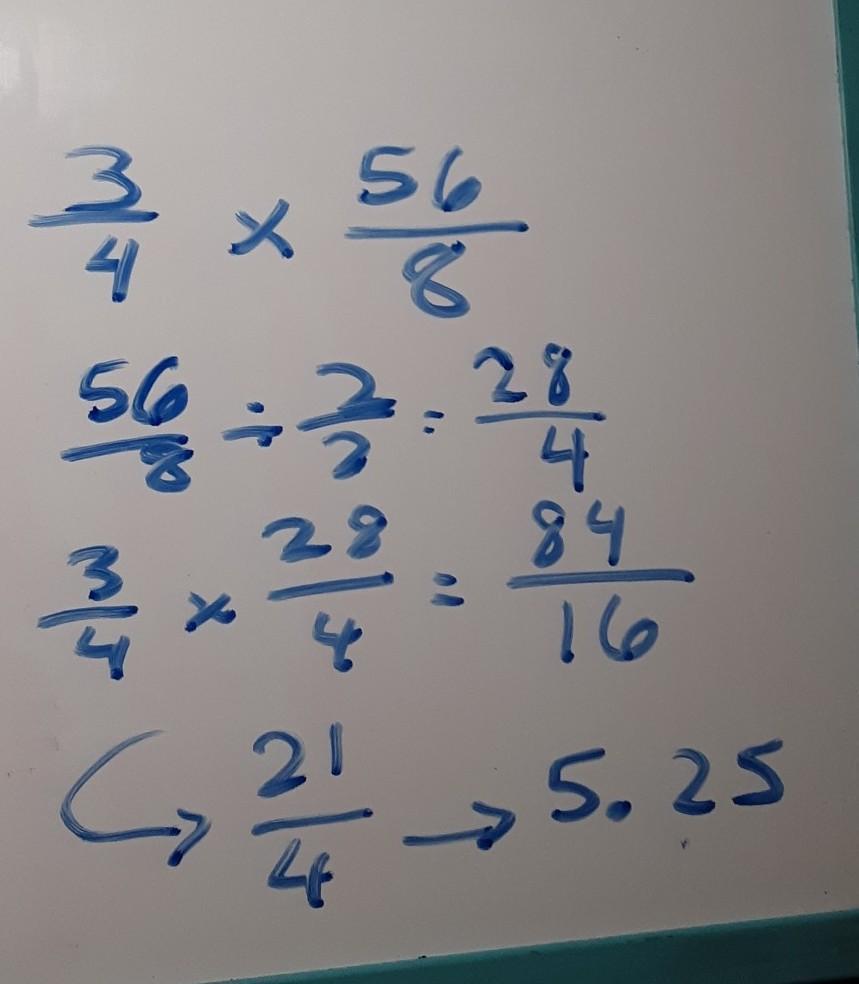 3/4 × 56/8
56/8 ÷ 2/2 = 28/4
3/4 × 28/4 = 84/16
↪ 21/4 → 5.25